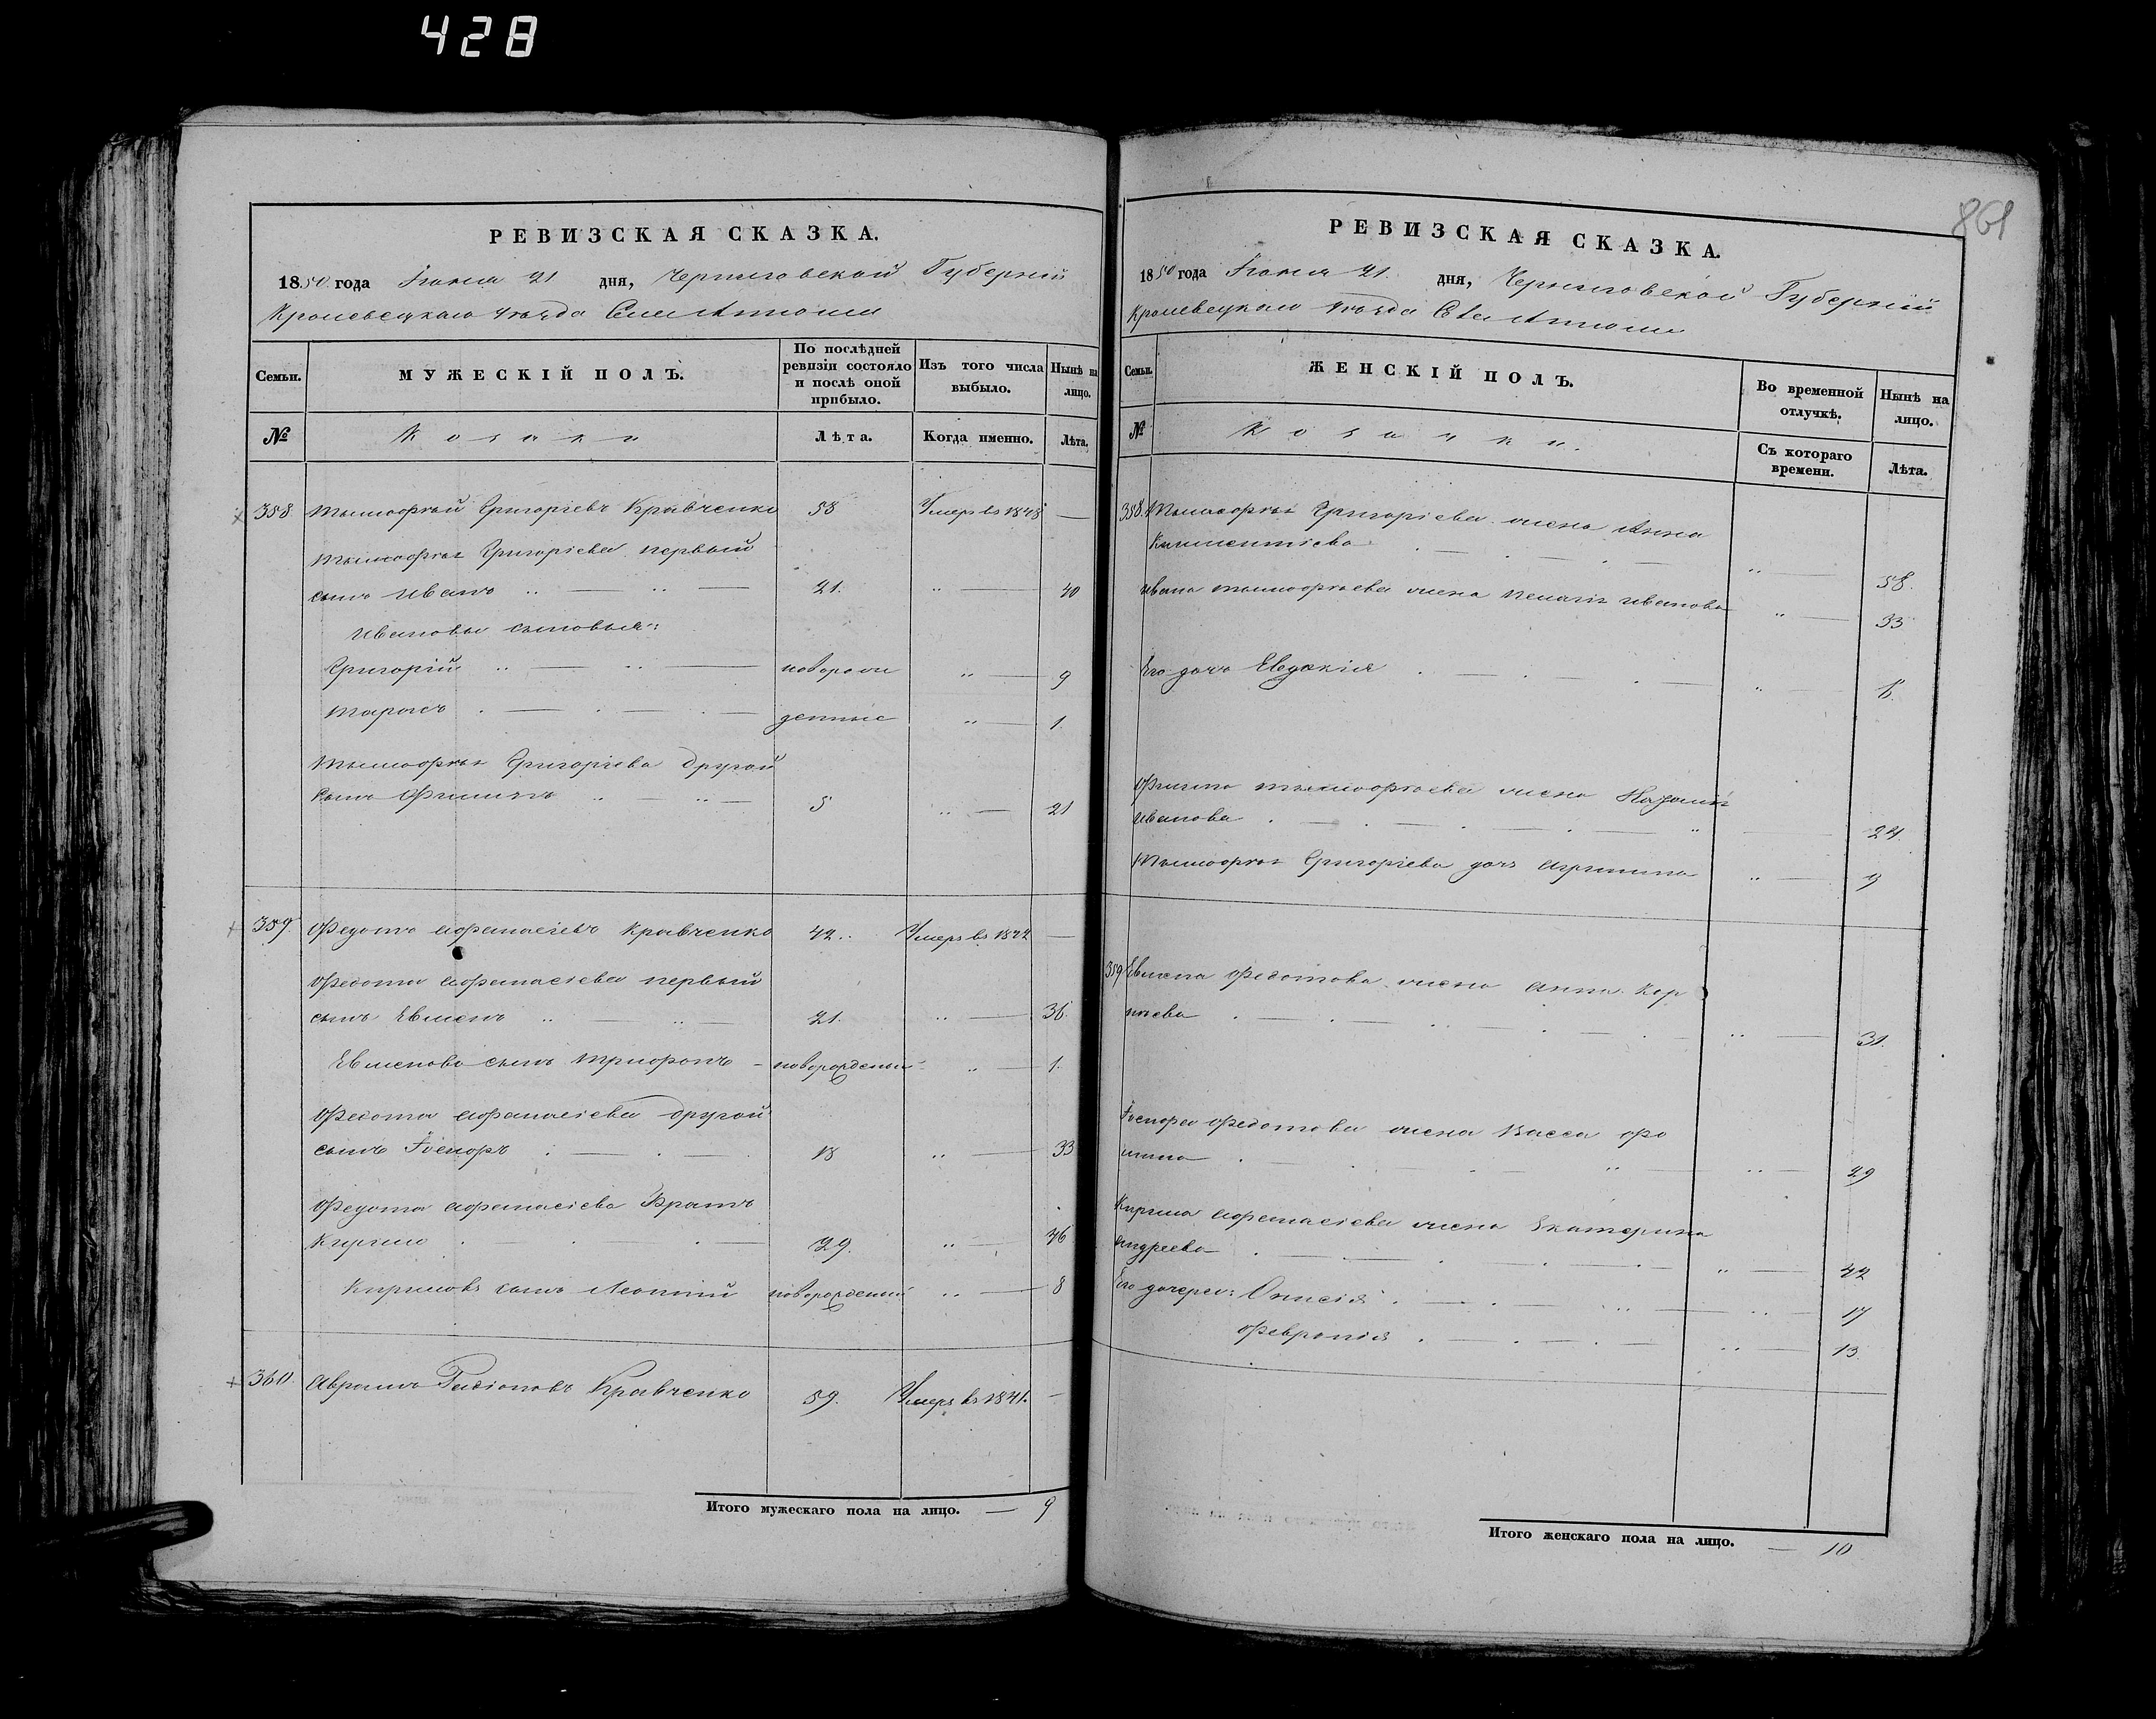 428
861
РЕВИЗСКАЯ СКАЗКА.
1850 года Іюня 21 дня, Черниговской Губерніи
Кролевецкаго Уѣзда Села
МУЖЕСКІЙ ПОЛЪ.
Семьи.
По послѣдней ревизіи состояло и послѣ оной прибыло.
Изъ того числа выбыло.
Нынѣ на лицо.
№
Козаки
Лѣта.
Когда именно.
Лѣта.
358 Тымофѣй Григоріевъ Кравченко 58 Умеръ въ 1848 —
Тымофѣя Григоріева первый
сынъ Иванъ 21. 40
Ивановы сыновья:
Григорій новорож 9
Тарасъ денные 1.
Тымофѣя Григоріева другой
сынъ Филипъ 5 21
359 Федотъ Афанасіевъ Кравченко 42. Умеръ въ —
Федота Афанасіева первый
сынъ Евменъ 21. 36
Евменовъ сынъ Трифонъ - новорожденый 1.
Федота Афанасіева другой
сынъ 18 33
Федота Афанасіева братъ
Кирило 29. 46
Кириловъ сынъ Леонтій новорожденый 8
360. Аврамъ Кравченко 59. Умеръ въ 1841. —
Итого мужескаго пола на лицо. — 9
РЕВИЗСКАЯ СКАЗКА.
1850 года Іюня 21. дня, Черниговской Губерніи
Кролевецкаго Уѣзда Села
Семьи.
ЖЕНСКІЙ ПОЛЪ.
Во временной отлучкѣ.
Нынѣ на лицо.
№
Козачки.
Съ котораго времени.
Лѣта.
358. Тымофѣя Григоріева жена Анна
Климентіева 58.
Ивана Тымофѣева жена Пелагія Иванова 33
Его дочь Евдокія 6.
Филипа Тымофѣева жена
Иванова 24.
Тымофѣя Григоріева дочь Агрипина 9
359 Евмена Федотова жена Анна Кар
пѣева 31.
Федотова жена Васса Фо
мина 29
Кирила Афанасіева жена Екатерина
Андреева 42
Его дочери: Анисія 17
Февронія 13
Итого женскаго пола на лицо. — 10